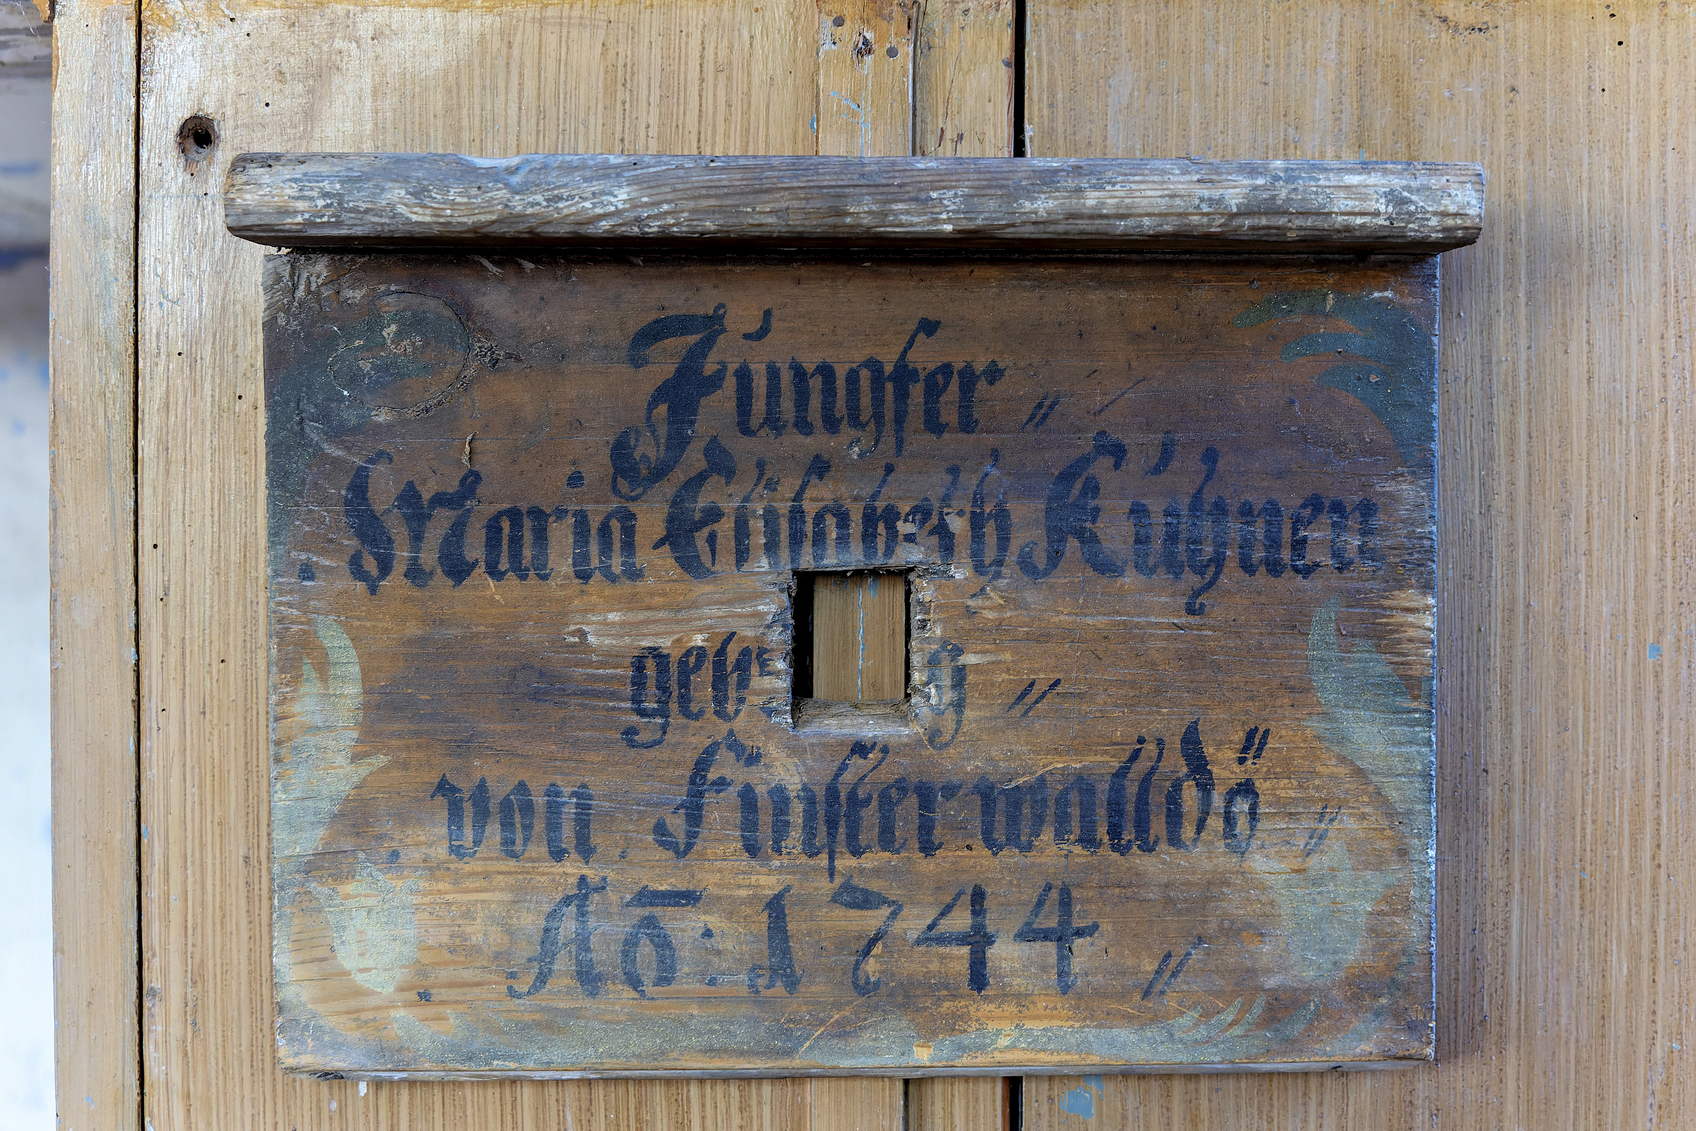 Jungfer "
Maria Elisabeth Kühnen
geb g "
von Finsterwalldö "
Aō: 1744 "